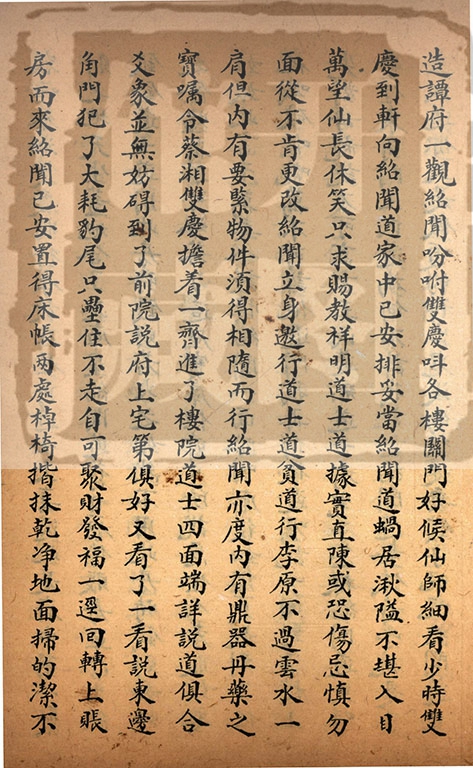 造譚府一觀紹聞吩咐雙慶呌各樓關門好候仙師細看少時雙
慶到軒向紹聞道家中已安排妥當紹聞道蝸居湫隘不堪入目
萬望仙長休笑只求賜教祥明道士道據實直陳或恐傷忌慎勿
面從不肯更改紹聞立身邀行道士道貧道行李原不過雲水一
肩但内有要緊物件須得相隨而行紹聞亦度内有鼎器丹藥之
寶嘱令蔡湘雙慶擔着一齊進了樓院道士四面端詳説道俱合
爻象並無妨碍到了前院説府上宅第俱好又看了一看説東邊
角門犯了大耗豹尾只壘住不走自可聚財發福一逕回轉上賬
房而來紹聞已安置得床帳兩處棹椅揩抹乾净地面掃的潔不